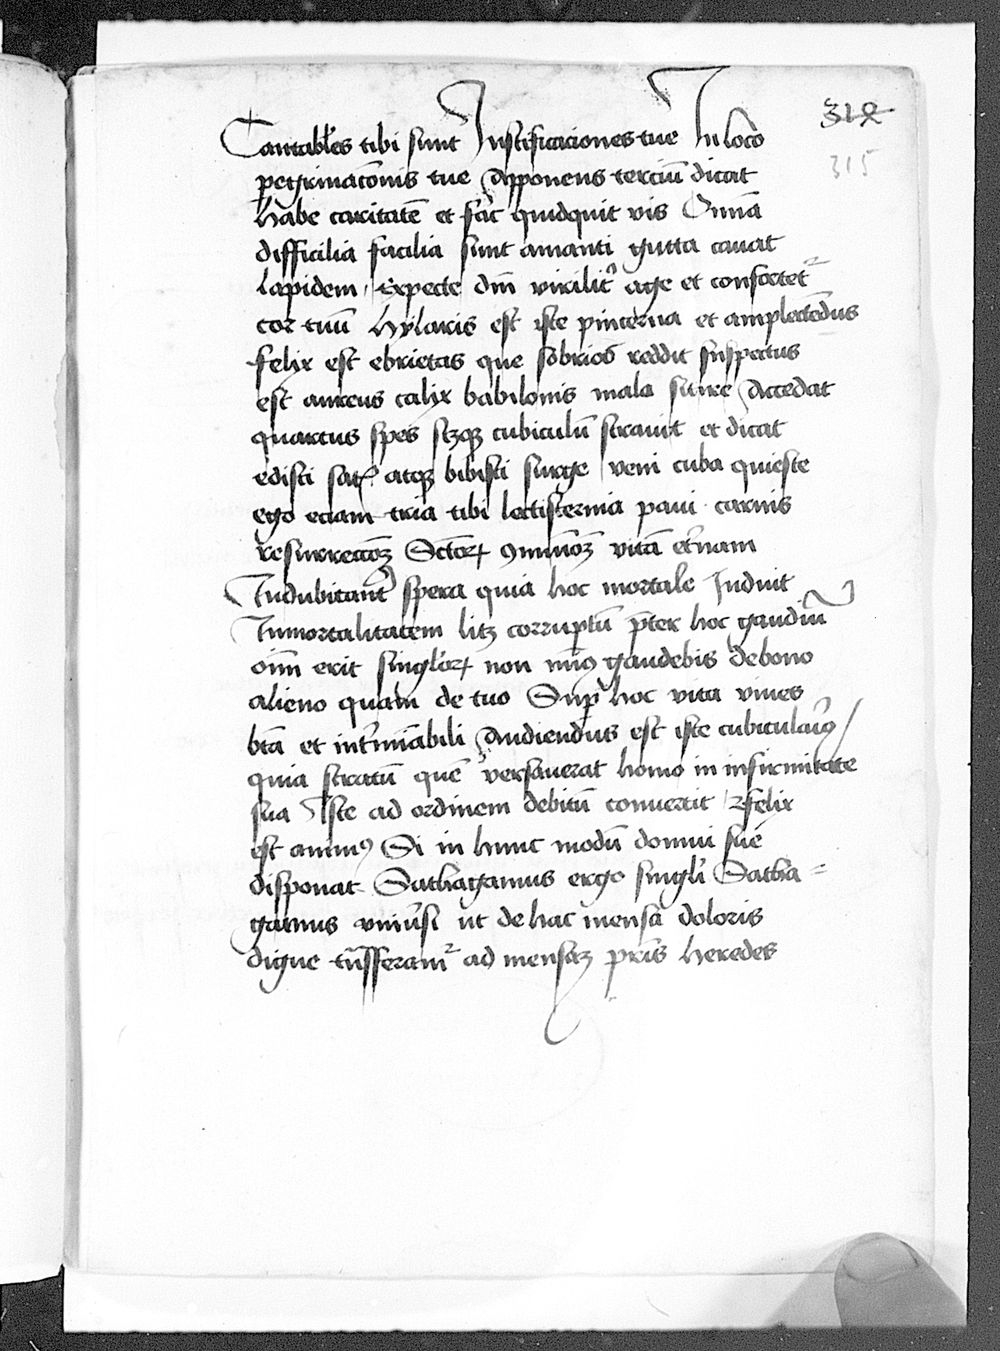 318
315
Cantabl'es tibi sunt Iustificaciones tue In loco
pegrinac̄onis tue Apponens terciū dicat
habe caritatē et fac quidquit vis Om̄ia
difficilia facilia sunt amanti gutta cavat
lapidem Expecte dn̄m virilit' age et confortet'
cor tuū hylaris est iste pincerna et amplectēdus
felix est ebrietas que sobrios reddit suspectus
est aureus calix babilonis mala Accedat
quartus spes cubiculū stravit et dicat
edisti sat atq bibisti surge veni cuba quieste
ego eciam tria tibi lectisternia pavi carnis
resurrecc̄oꝫ Sctoꝝ ꝯmunioꝫ vitā et'nam
Indubitant' spera quia hoc mortale Induit
Inmortalitatem litꝫ corruptū p̄ter hoc gaudiū
oīm erit singl'oꝝ non minꝰ gaudebis de bono
alieno quam de tuo Sup hoc vita vives
btā et int'minabili Audiendus est iste cubiculariꝰ
quia stratū quē versaverat homo in infirmitate
sua Iste ad ordinem debitū convertit felix
est animꝰ Si in hunc modū domui sue
disponat Sathagamus ergo singl'i Satha=
gamus univ'si ut de hac mensa doloris
digne tn̄sferam' ad mensaꝫ pr̄is heredes